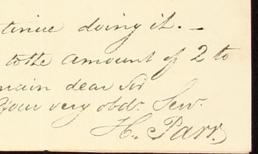 tinue doing it. —
to the amount of 2 to
main dear Sir
Your very obdt. Serv.
H. Parr.